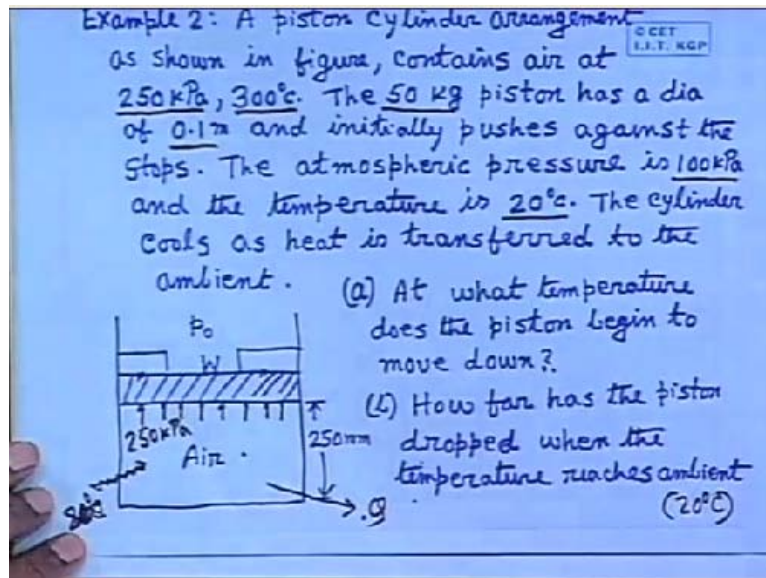 Example 2: A piston cylinder arrangement
© CET
I.I.T. KGP
as shown in figure, contains air at
250 kPa, 300°c. The 50 kg piston has a dia
of 0.1m and initially pushes against the
stops. The atmospheric pressure is 100kPa
and the temperature is 20°c. The cylinder
cools as heat is transferred to the
ambient.
(a) At what temperature
does the piston begin to
move down?
(b) How far has the piston
dropped when the
temperature reaches ambient
(20°C)
p₀
W
250kPa
250mm
Air